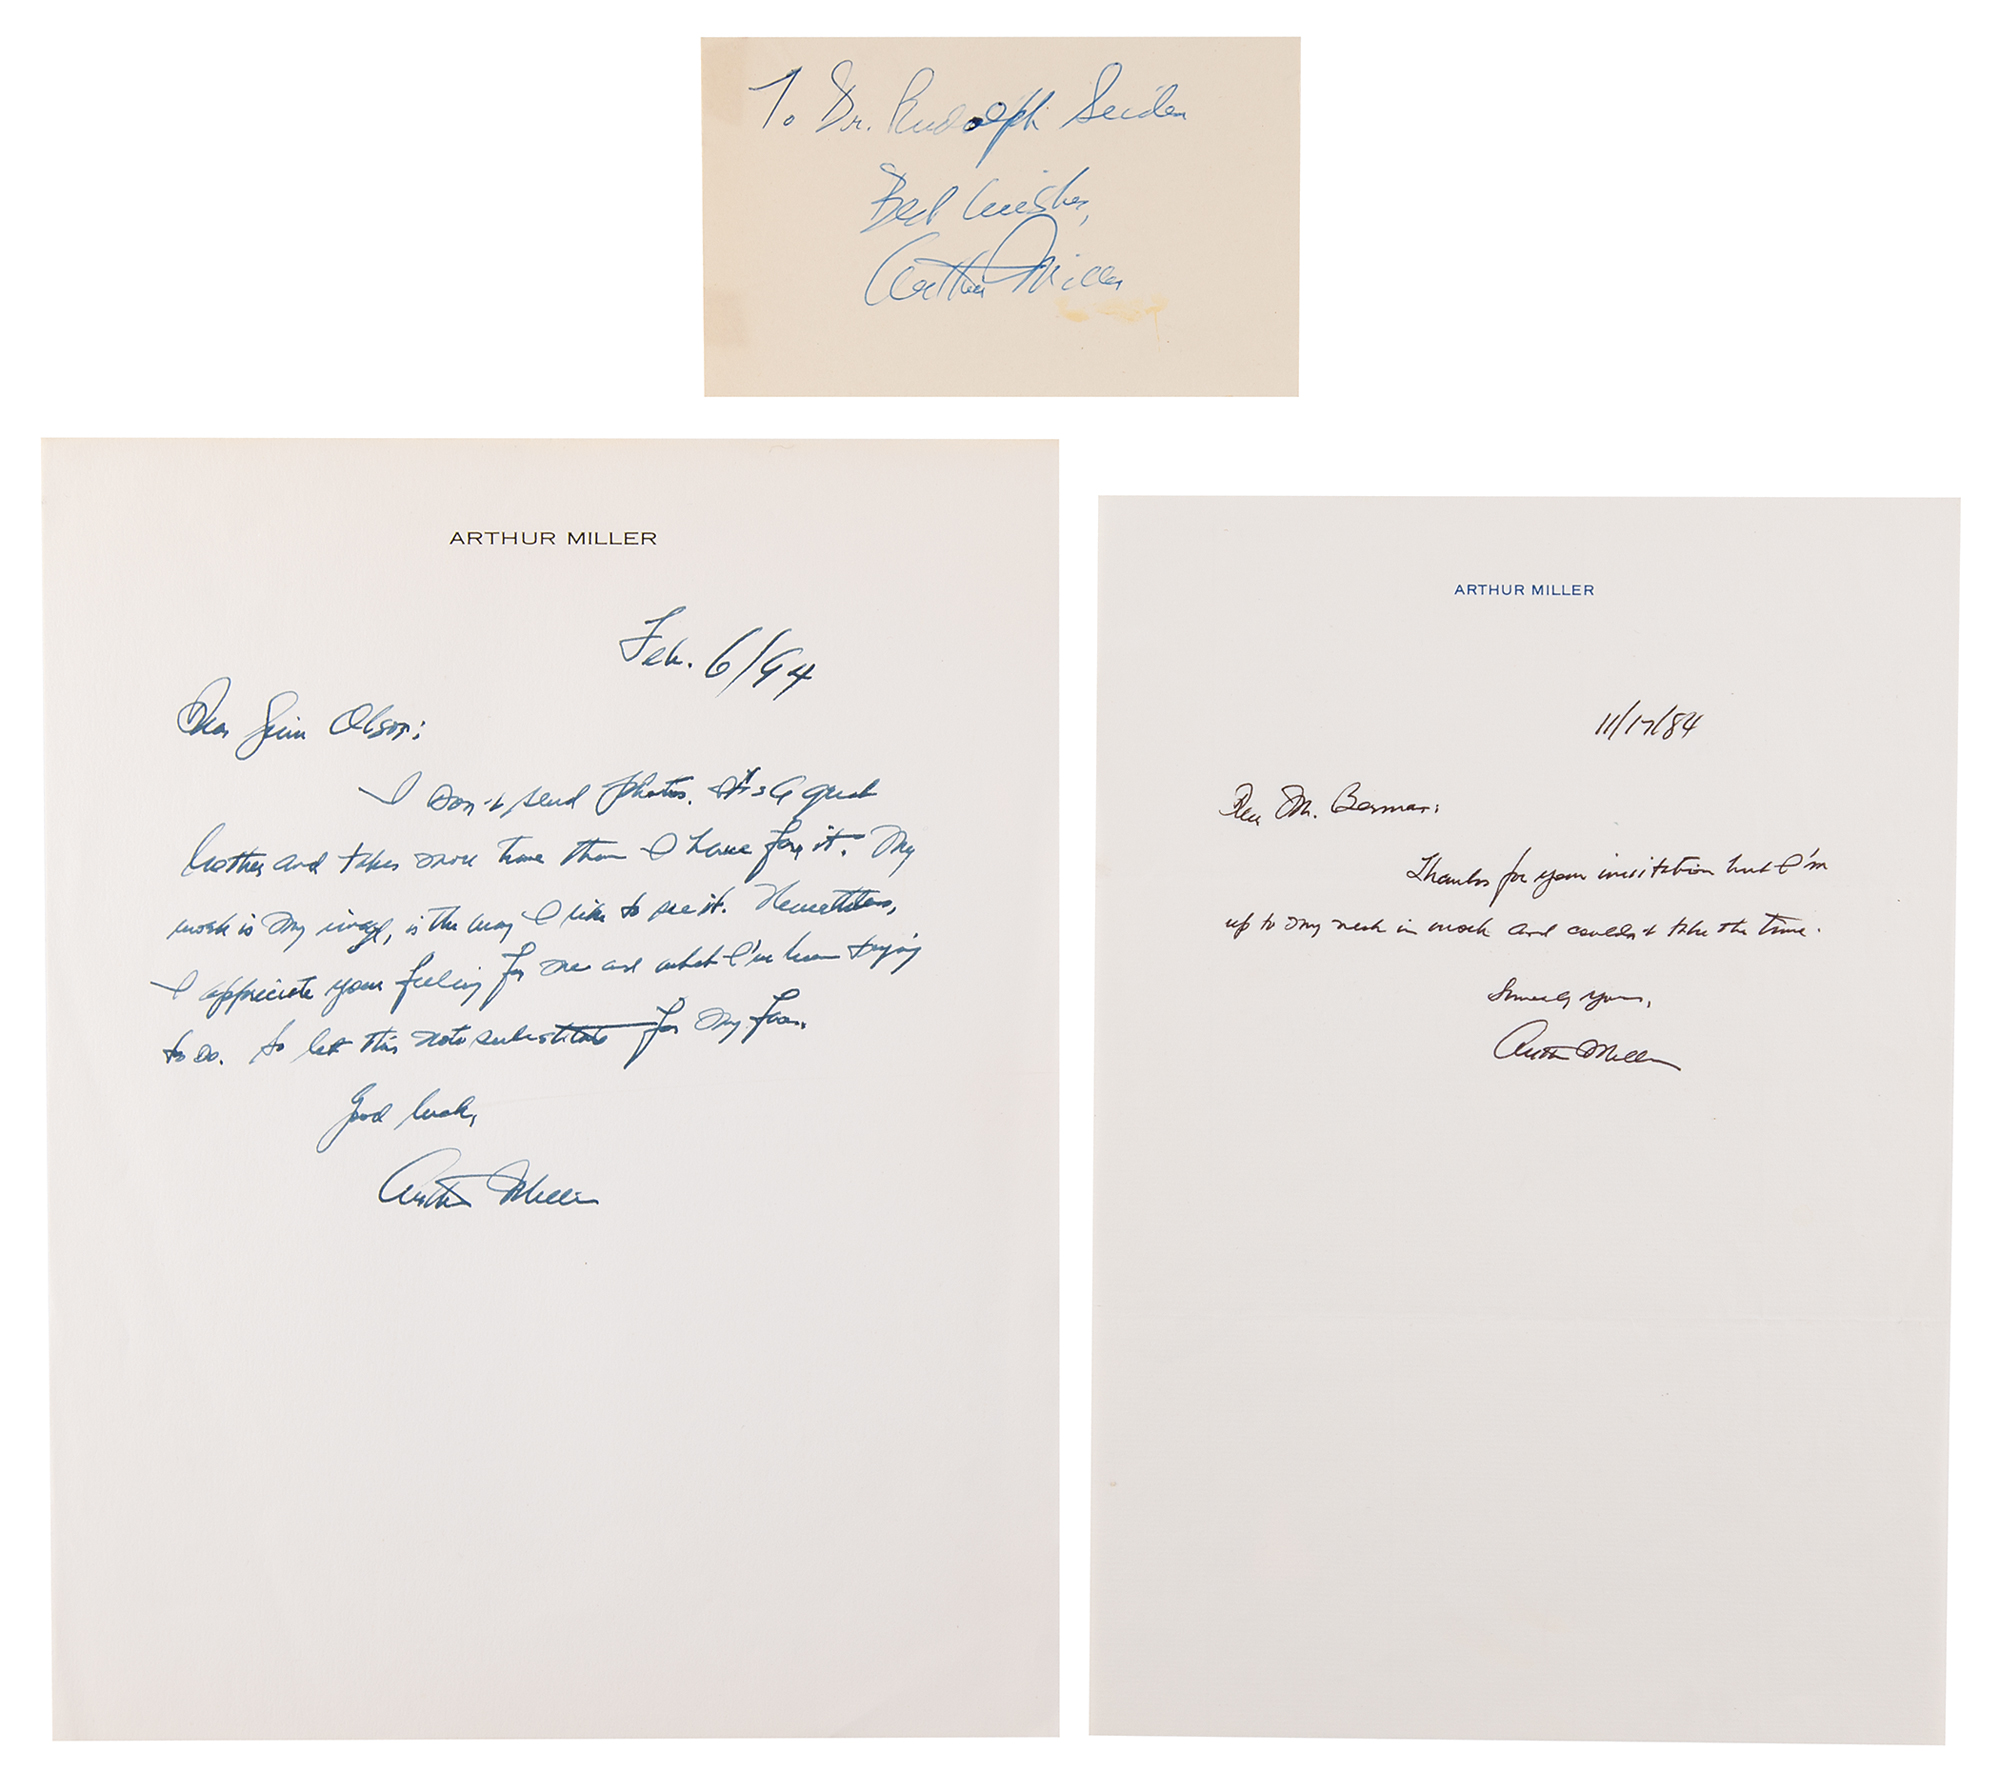 To Dr. Rudolph Seiden
Best Wishes,
Arthur Miller
ARTHUR MILLER
Feb. 6/94
Dear Olson:
I don't send photos. It's a great
bother and takes more time than I have for it. My
work is my image, is the way I like to see it. Nevertheless,
I appreciate your feeling for me and what I've been trying
to do. So let this note substitute for my face.
Good luck,
Arthur Miller
ARTHUR MILLER
11/17/84
Dear Mr. Berman:
Thanks for your invitation but I'm
up to my neck in work and couldn't take the time.
Sincerely yours,
Arthur Miller